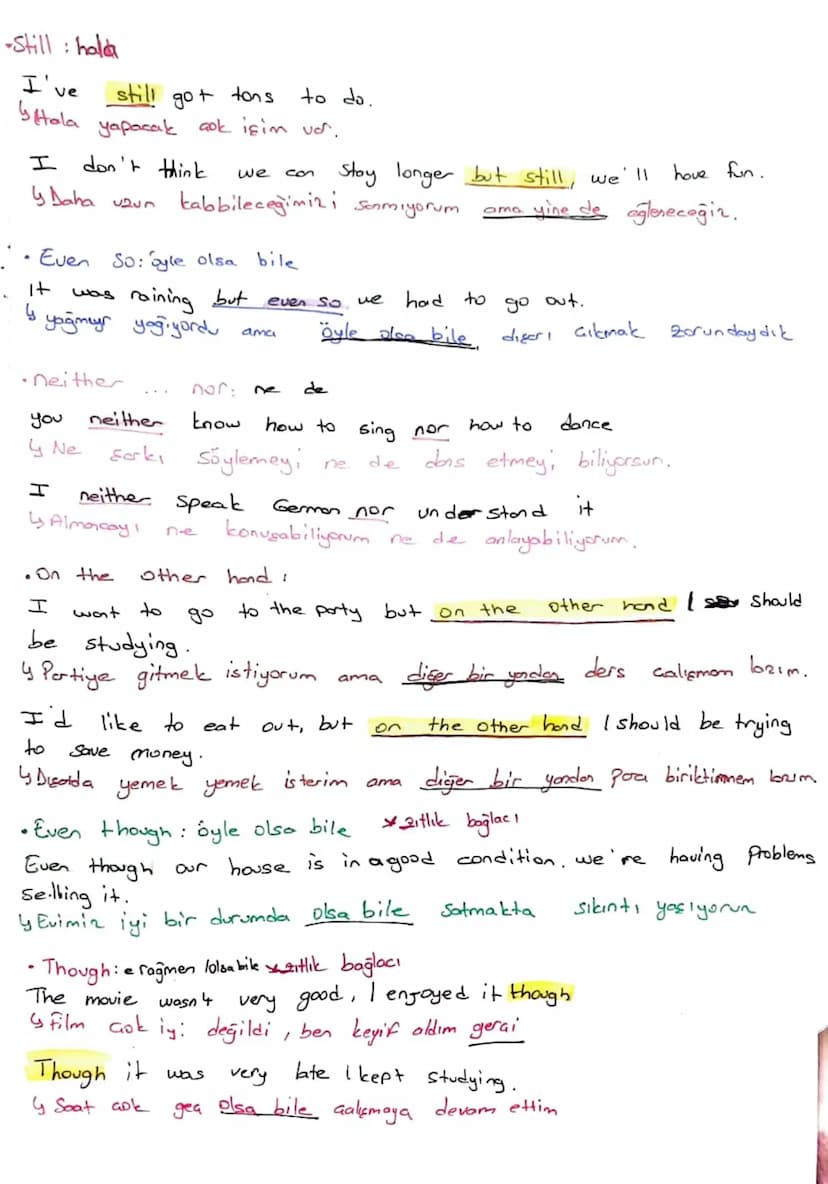 •Still : hala
I've still got tons to do.
↳Hala yapacak çok işim var.
I don't think we can stay longer but still, we'll have fun.
↳Daha uzun kalabileceğimizi sanmıyorum ama yine de eğleneceğiz.
• Even so: öyle olsa bile
It was raining but even so we had to go out.
↳ yağmur yağıyordu ama öyle olsa bile, dışarı çıkmak zorundaydık
•neither ... nor: ne de
you neither know how to sing nor how to dance
↳ Ne şarkı söylemeyi ne de dans etmeyi biliyorsun.
I neither speak German nor understand it
↳Almancayı ne konuşabiliyorum ne de anlayabiliyorum.
•On the other hand :
I want to go to the party but on the other hand I should
be studying.
↳ Partiye gitmek istiyorum ama diğer bir yandan ders çalışmam lazım.
I'd like to eat out, but on the other hand I should be trying
to save money.
↳Dışarda yemek yemek isterim ama diğer bir yandan para biriktirmem lazım
•Even though : öyle olsa bile *zıtlık bağlacı
Even though our house is in a good condition. we're having problems
selling it.
↳Evimiz iyi bir durumda olsa bile satmakta sıkıntı yaşıyoruz
• Though: e rağmen /olsa bile *zıtlık bağlacı
The movie wasn't very good, I enjoyed it though
↳ film çok iyi değildi, ben keyif aldım gerçi
Though it was very late I kept studying.
↳ Saat çok geç olsa bile çalışmaya devam ettim